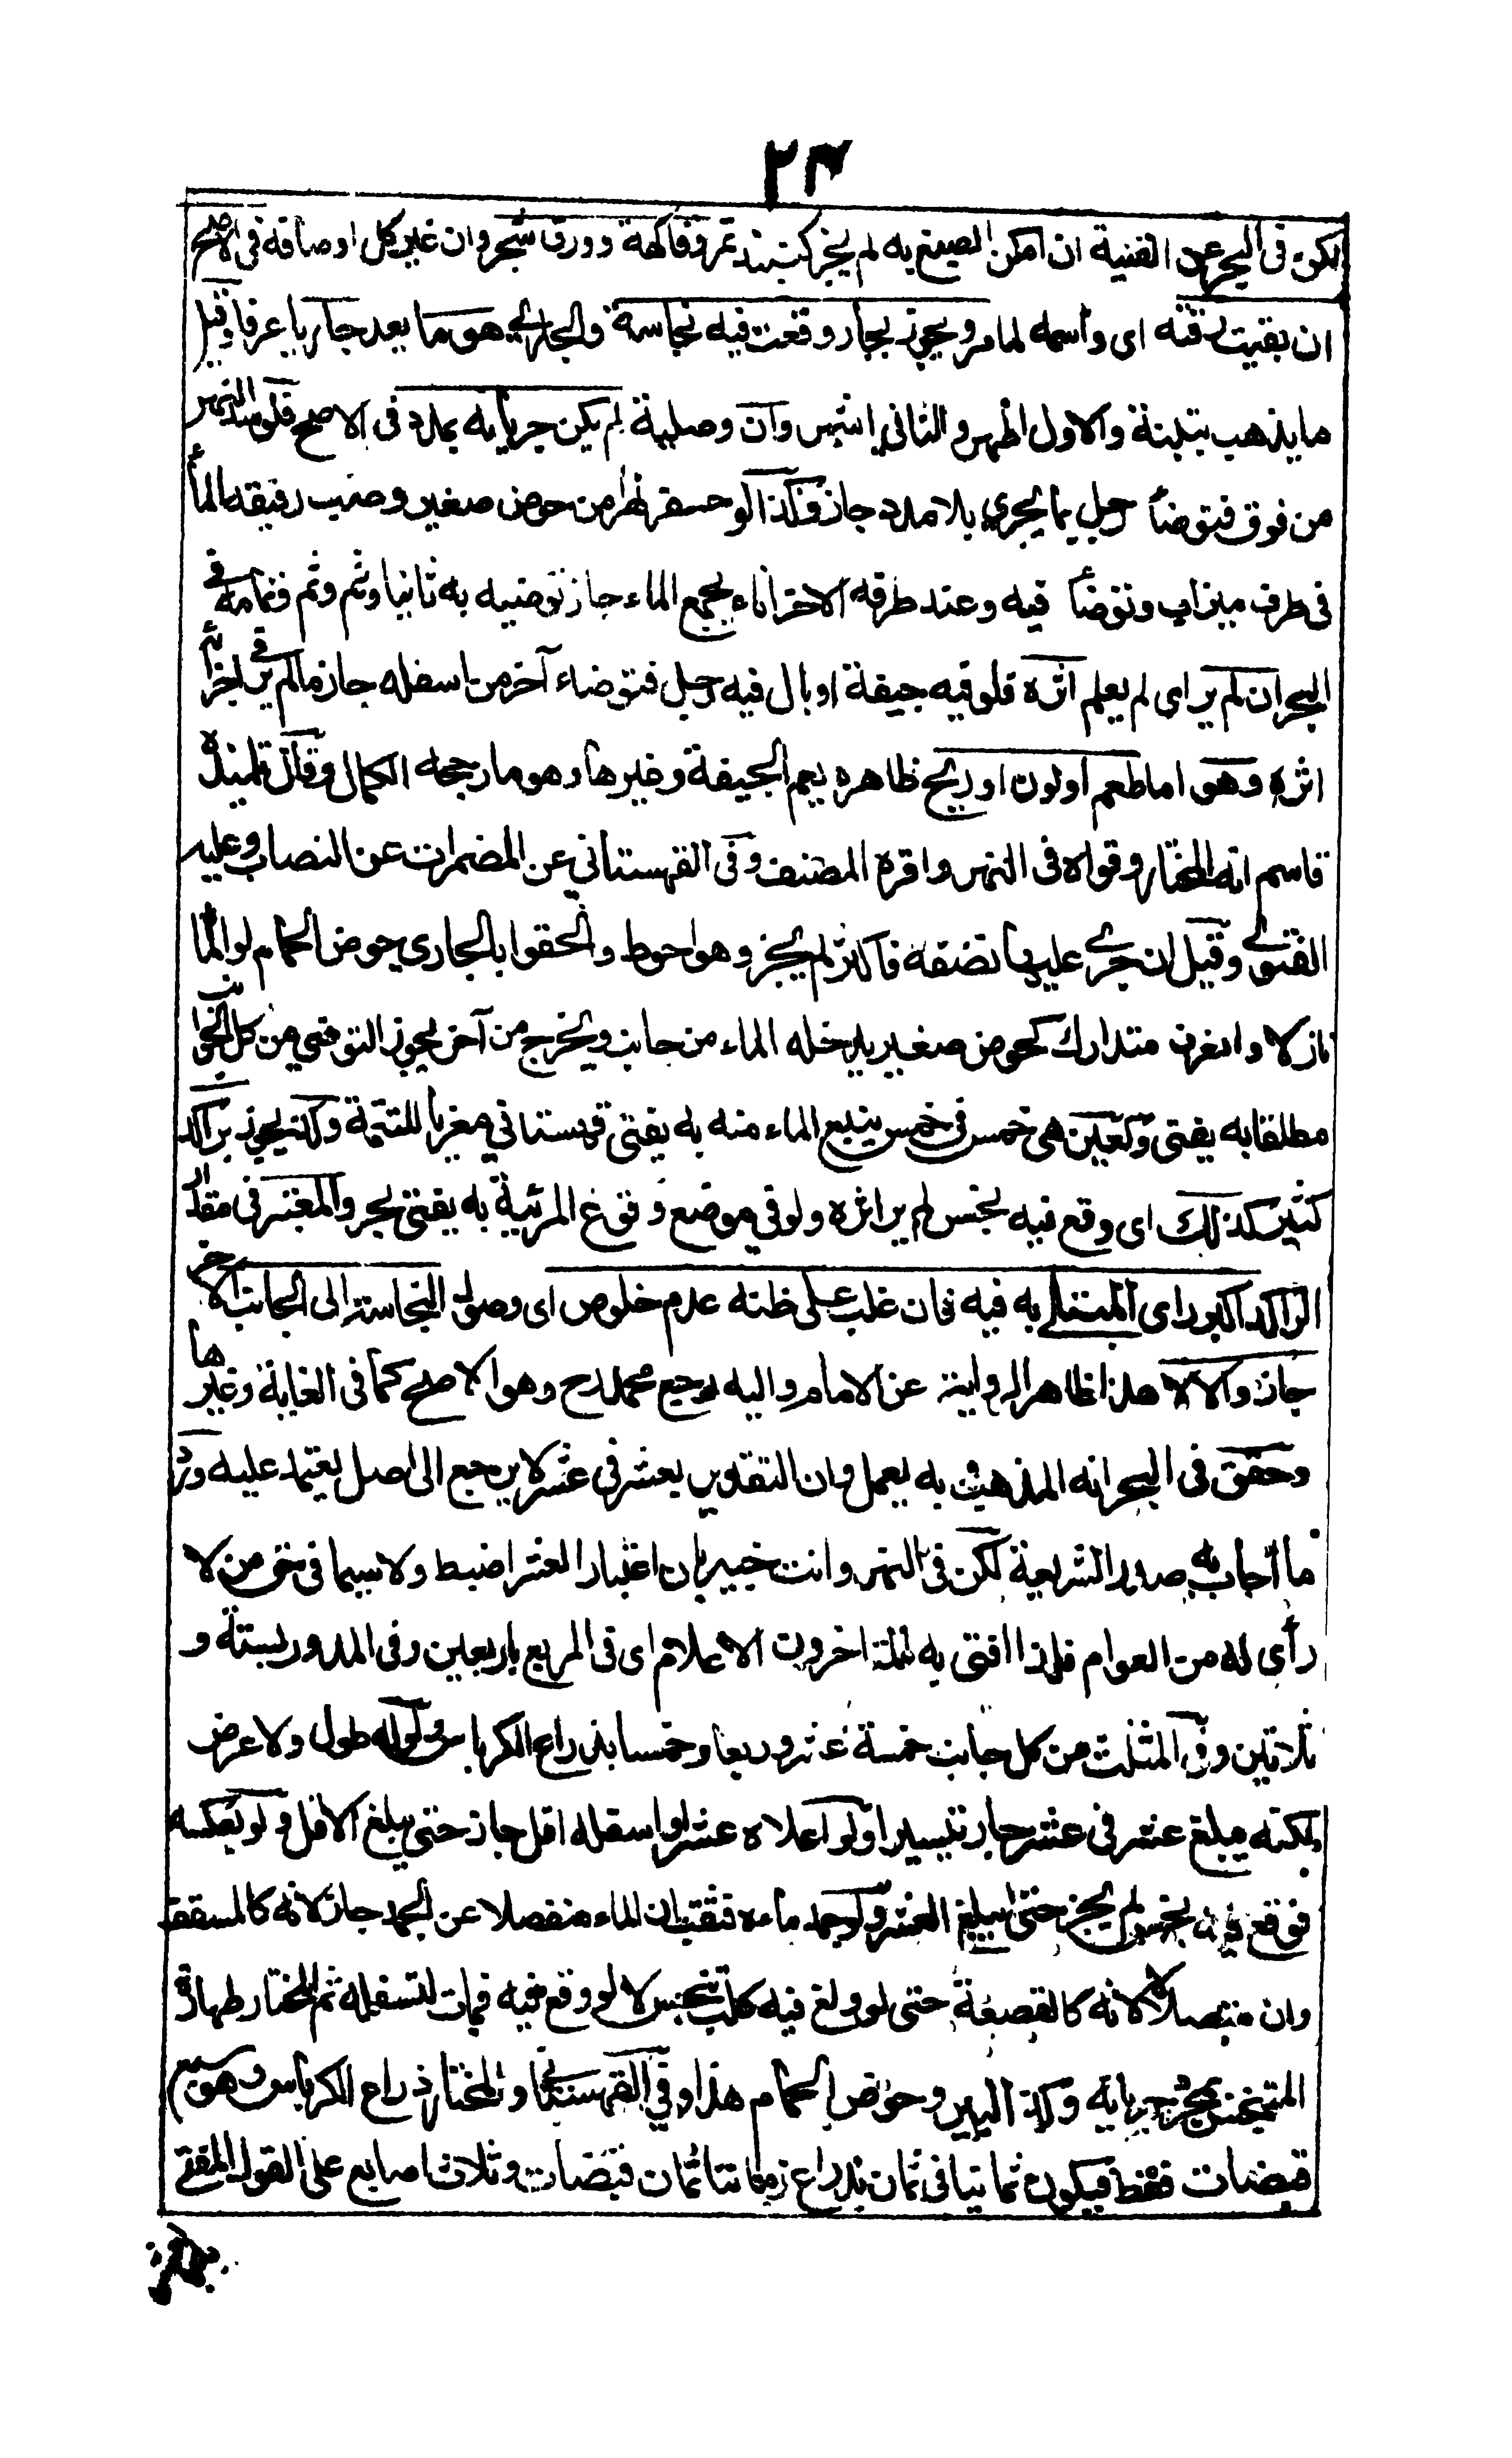 ٢٣
لكن فى البحر عن القنية ان امكن الصبغ به لم يجز كنبيذ تمر وفاكهة وورق شجر وان غير كل اوصافه فى الاصح
ان بقيت رقته اى واسمه لما مر ويجوز بجار وقعت فيه نجاسة والجارى هو ما يعد جاريا عرفا وقيل
ما يذهب بتبنة والاول اظهر والثانى اشهر وان وصلية لم يكن جريانه بمدد فى الاصح فلو سد النهر
من فوق فتوضأ رجل بما يجرى بلا مدد جاز وكذا لو حفر نهرا من حوض صغير وصب رفيقه الماأ
فى طرف ميزاب وتوضأ فيه وعند طرفه الاخر اناء يجمع الماء جاز توضيه به ثانيا وثم وثم وتمامه فى
البحر ان لم ير اى لم يعلم اثره فلو فيه جيفة او بال فيه رجل فتوضاء آخر من اسفله جاز ما لم ير فى اجزائه
اثره وهو اما طعم او لون او ريح ظاهره يعم الجيفة وغيرها وهو ما رجحه الكمال وقال تلميذه
قاسم انه المختار وقواه فى النهر واقره المصنف وفى القهستانى عن المضمرات عن النصاب وعليه
الفتوى وقيل ان جرى عليها نصفه فاكثر لم يجز وهو احوط والحقوا بالجارى حوض الحمام لو الماأ
نازلا والغرف متدارك كحوض صغير يدخله الماء من جانب ويخرج من آخر يجوز التوضى من كل الجوانب
مطلقا به يفتى وكعين هى خمس فى خمس ينبع الماء منه به يفتى قهستانى معزيا للتتمة وكذا يجوز براكد
كثير كذلك اى وقع فيه نجس لم ير اثره ولو فى موضع وقوع المرئية به يفتى بحر والمعتبر فى مقدار
الراكد اكبر راى المبتلى به فيه فان غلب على ظنه عدم خلوص اى وصول النجاسة الى الجانب الاخر
جاز والا لا هذا ظاهر الرواية عن الامام واليه رجع محمد رح وهو الاصح كما فى الغاية وغيرها
وحقق فى البحر انه المذهب وبه يعمل وان التقدير بعشر فى عشر لا يرجع الى اصل يعتمد عليه ورد
ما أجاب به صدر الشريعة لكن فى النهر وانت خبير بان اعتبار العشر اضبط ولا سيما فى حق من لا
رأى له من العوام فلذا افتى به المتاخرون الاعلام اى فى المربع باربعين وفى المدور بستة و
ثلاثين وفى المثلث من كل جانب خمسة عشر وربعا وخمسا بذراع الكرباس ولو له طول ولا عرض
لكنه يبلغ عشر فى عشر جاز تيسيرا ولو اعلاه عشرا واسفله اقل جاز حتى يبلغ الاقل ولو بعكسه
فوقع فيه نجس لم يجز حتى يبلغ العشر ولو جمد ماءه فثقب ان الماء منفصلا عن الجمد جاز لانه كالمسقف
وان متصلا لا لانه كالقصعة حتى لو ولغ فيه كلب تنجس لا لو وقع فيه فمات لتسفله ثم المختار طهارة
المتنجس بمجرد جريانه وكذا البير وحوض الحمام هذا وفى القهستانى والمختار ذراع الكرباس وهو سبع
قبضات فقط فيكون ثمانيا فى ثمان بذراع زماننا ثمان قبضات وثلاث اصابع على القول المفتى